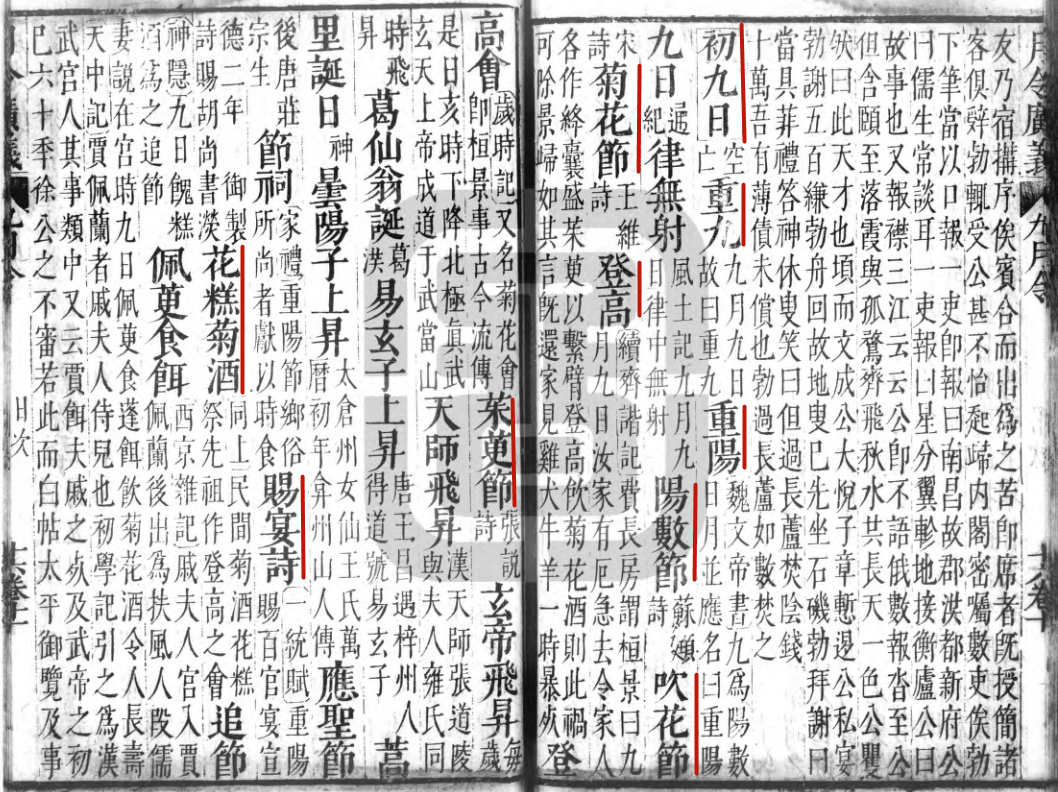 月令廣義 九月令
友乃宿搆序俟賓合而出爲之苦卽席者旣授簡諸
客俱辭勃輒受公甚不怡起歸内閣密囑數吏俟勃
下筆當以口報一吏卽報曰南昌故郡洪都新府公
曰儒生常談耳一吏報曰星分翼軫地接衡廬公曰
故事也又報襟三江云云公卽不語俄數報沓至公
但含頤至落霞與孤鶩齊飛秋水共長天一色公矍
然曰此天才也頃而文成公大悅子章慙遑公私宴
勃謝五百縑勃舟回故地叟已先坐石磯勃拜謝曰
當具菲禮答神休叟笑曰但過長蘆焚陰錢
十萬吾有薄債未償也勃過長蘆如數焚之
初九日 空亡 重九 九月九日故曰重九 重陽 魏文帝書九爲陽數日月並應名曰重陽
九日 紀 律無射 風土記九月九日律中無射 陽數節 蘇頲詩 吹花節
宋詩 菊花節 王維詩 登高 續齊諧記費長房謂桓景曰九月九日汝家有厄急去令家人
各作絳囊盛茱萸以繫臂登高飲菊花酒則此禍
可除景歸如其言旣還家見雞犬牛羊一時暴死 登
高會 歲時記又名菊花會卽桓景事古今流傳 茱萸節 張說詩 玄帝飛昇 每歲
是日亥時下降北極眞武玄天上帝成道于武當山 天師飛昇 漢天師張道陵與夫人雍氏同
時飛昇 葛仙翁誕 葛洪 易玄子上昇 唐王昌遇梓州人得道號易玄子 葛
里誕日 神 曇陽子上昇 太倉州女仙王氏萬曆初年弇州山人傳 應聖節
後唐莊宗生 節祠 家禮重陽節鄉俗所尚者獻以時食 賜宴詩 一統賦重陽賜百官宴宣
德二年御製詩賜胡尚書濙 花糕菊酒 同上民間菊酒花糕祭先祖作登高之會 追節
神隱九日餽糕酒爲之追節 佩萸食餌 西京雜記戚夫人宮人賈佩蘭後出爲扶風人段儒
妻說在宮時九日佩萸食蓬餌飲菊花酒令人長壽
天中記賈佩蘭者戚夫人侍兒也初學記引之爲漢
武宮人其事類中又云賈餌夫戚之死及武帝之初
已六十季徐公之不審若此而白帖太平御覽及事